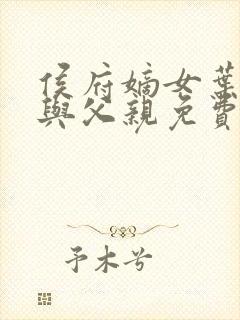 侯府嫡女葉
與父親免費
予木兮